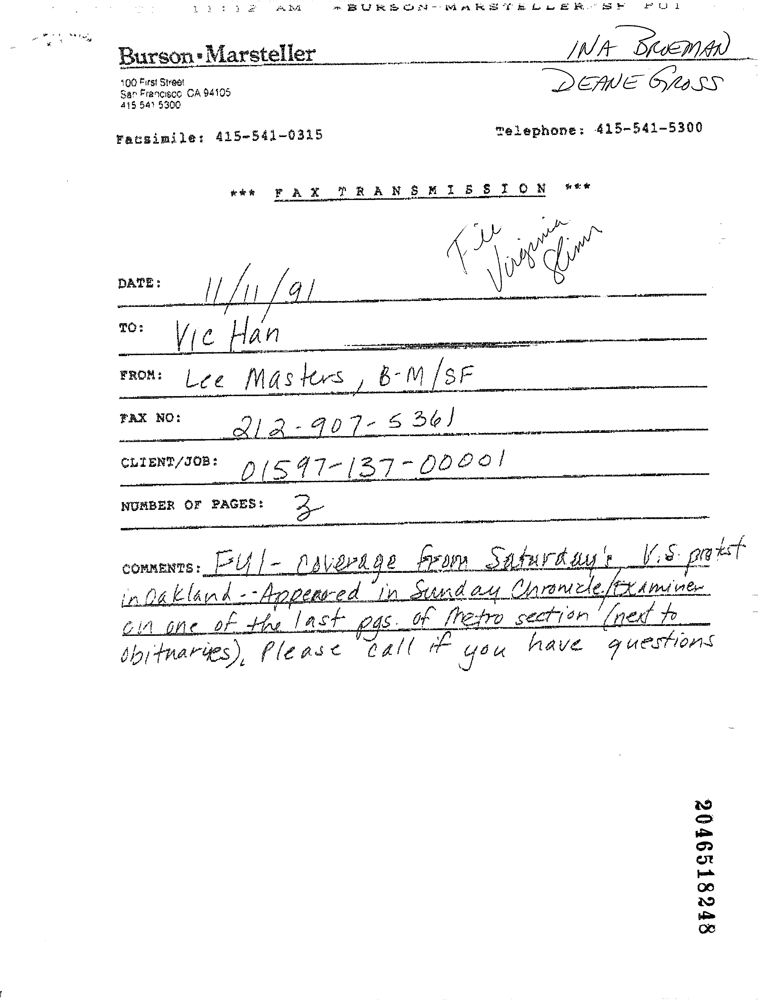 11:12 AM *BURSON-MARSTELLER/SF P01
Burson•Marsteller
INA BROEMAN
DEANE GROSS
100 First Street
San Francisco CA 94105
415 541 5300
Facsimile: 415-541-0315
Telephone: 415-541-5300
*** FAX TRANSMISSION ***
File
Virginia
Slims
DATE: 11/11/91
TO: Vic Han
FROM: Lee Masters, B-M/SF
FAX NO: 212-907-5361
CLIENT/JOB: 01597-137-00001
NUMBER OF PAGES: 3
COMMENTS: FYI- Coverage from Saturday's V.S. protest
in Oakland -- Appeared in Sunday Chronicle/Examiner
on one of the last pgs. of Metro section (next to
obituaries), Please call if you have questions
2046518248